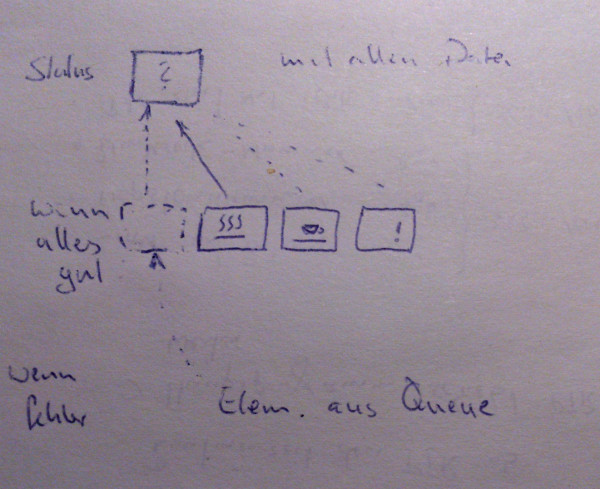 Status ? mit allen Daten
wenn
alles
gut
!
wenn
fehler
Elem. aus Queue